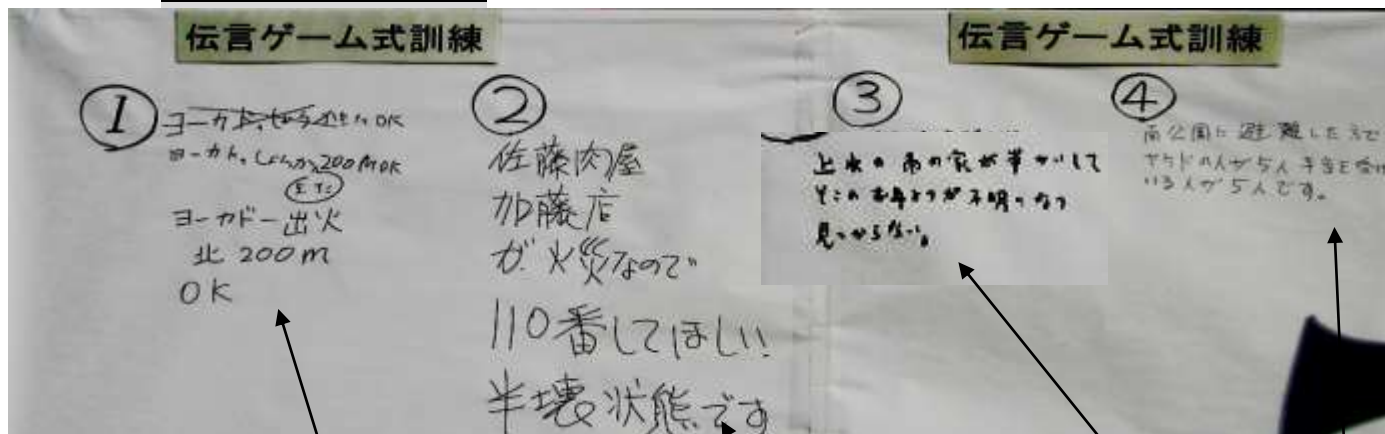 伝言ゲーム式訓練
①
OK
200m OK
ヨーカドー出火
北 200m
OK
②
佐藤肉屋
加藤店
が火災なので
110番してほしい
半壊状態です
伝言ゲーム式訓練
③
の南の家が半かいして
そこのお年よりが不明になって
見つからない。
④
南公園に避難した方で
人が5人 手当を受け
いる人が5人です。